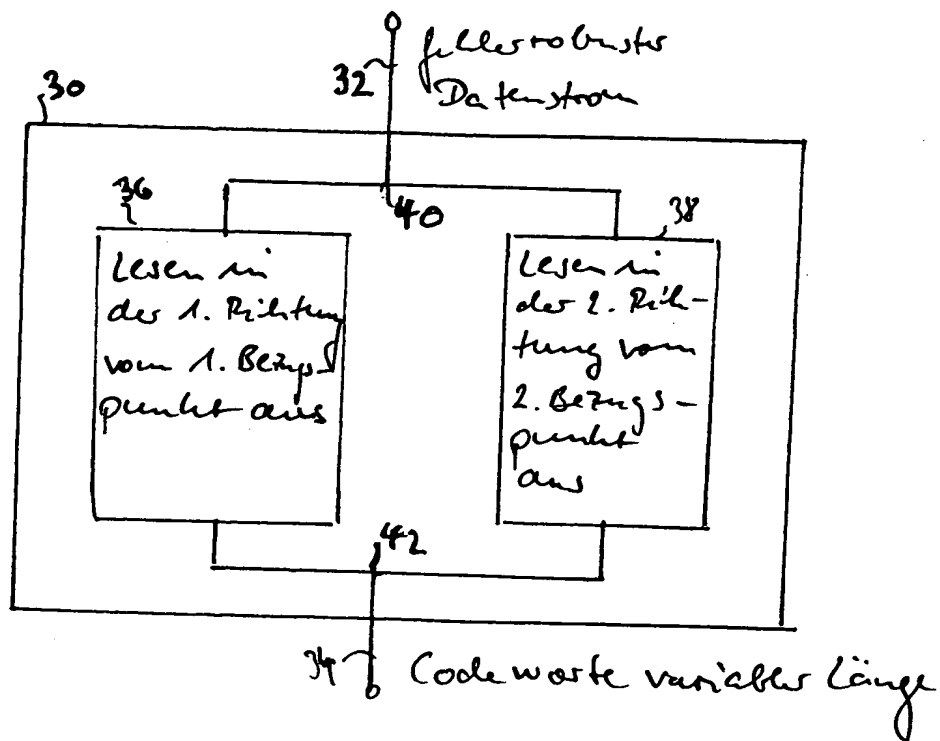 fehlerrobuster
32
Datenstrom
30
36
40
38
Lesen in
der 1. Richtung
vom 1. Bezugs-
punkt aus
Lesen in
der 2. Rich-
tung vom
2. Bezugs-
punkt
aus
42
34
Codeworte variabler Länge